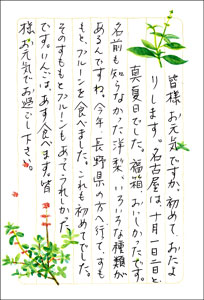 皆様お元気ですか、初めておたよ
りします。名古屋は、十月一日二日と
真夏日でした。福箱おいしかったです。
名前も知らなかった洋梨、いろいろな種類が
あるんですね。今年、長野県の方へ行って、すも
もとプルーンを食べました。これも初めてでした。
そのすももとプルーンもあってうれしかった
です。りんごは、あす食べます。皆
様お元気でお過ごし下さい。